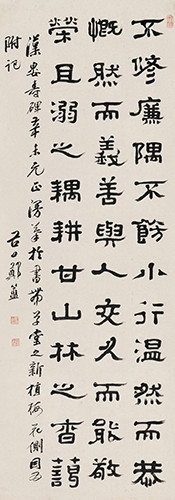 不修廉隅不飭小行溫然而恭
慨然而義善與人交久而能敬
榮且溺之耦耕甘山林之杳藹
漢婁壽碑辛未元正漫筆於書帶草堂之新植梅花側因
附記
谷口鄭簠